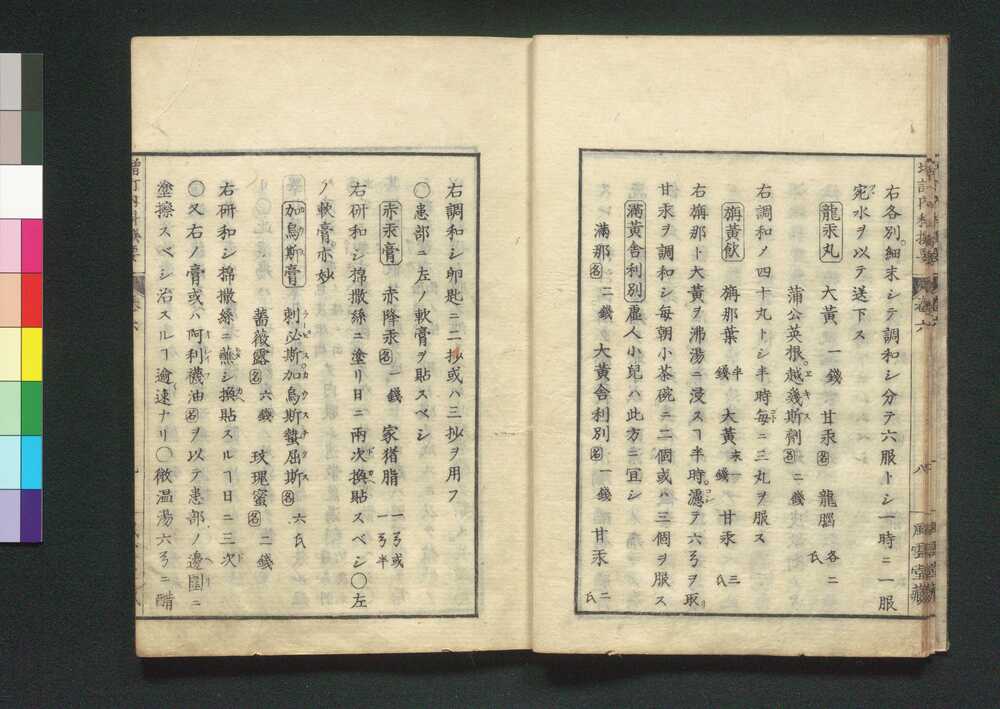 右各別細末シテ調和シ分テ六服トシ一時ニ一服
宛水ヲ以テ送下ス
龍汞丸 大黄 一錢 甘汞名 龍腦 各二氏
蒲公英根越幾斯劑名 二錢
エキス
右調和ノ四十丸トシ半時毎ニ三丸ヲ服ス
旃黄飲 旃那葉 半錢 大黄末 一錢 甘汞 三氏
右旃那ト大黄ヲ沸湯ニ浸スヿ半時濾テ六ヲ取
甘汞ヲ調和シ毎朝小茶碗ニ二個或ハ三個ヲ服ス
滿黄舎利別 虚人小兒ハ此方ニ宜シ
滿那名 二錢 大黄舎利別名 一錢 甘汞 二氏
八
風雲堂藏
右調和シ卯匙ニ二抄或ハ三抄ヲ用フ
〇患部ニ左ノ軟膏ヲ貼スベシ
赤汞膏 赤降汞名 一錢 家猪脂
右研和シ綿撒絲ニ塗リ日ニ兩次換貼スベシ〇左
ノ軟膏亦妙
加烏斯膏 刺必斯加烏斯蟄屈斯名 六氏
薔薇露名 六錢 玫瑰蜜名 二錢
右研和シ綿撒絲ニ蘸シ換貼スルヿ日ニ三次
〇又右ノ膏或ハ阿利襪油名ヲ以テ患部ノ邊圍ニ
塗擦スベシ治スルヿ逾速ナリ〇微温湯六ニ醋